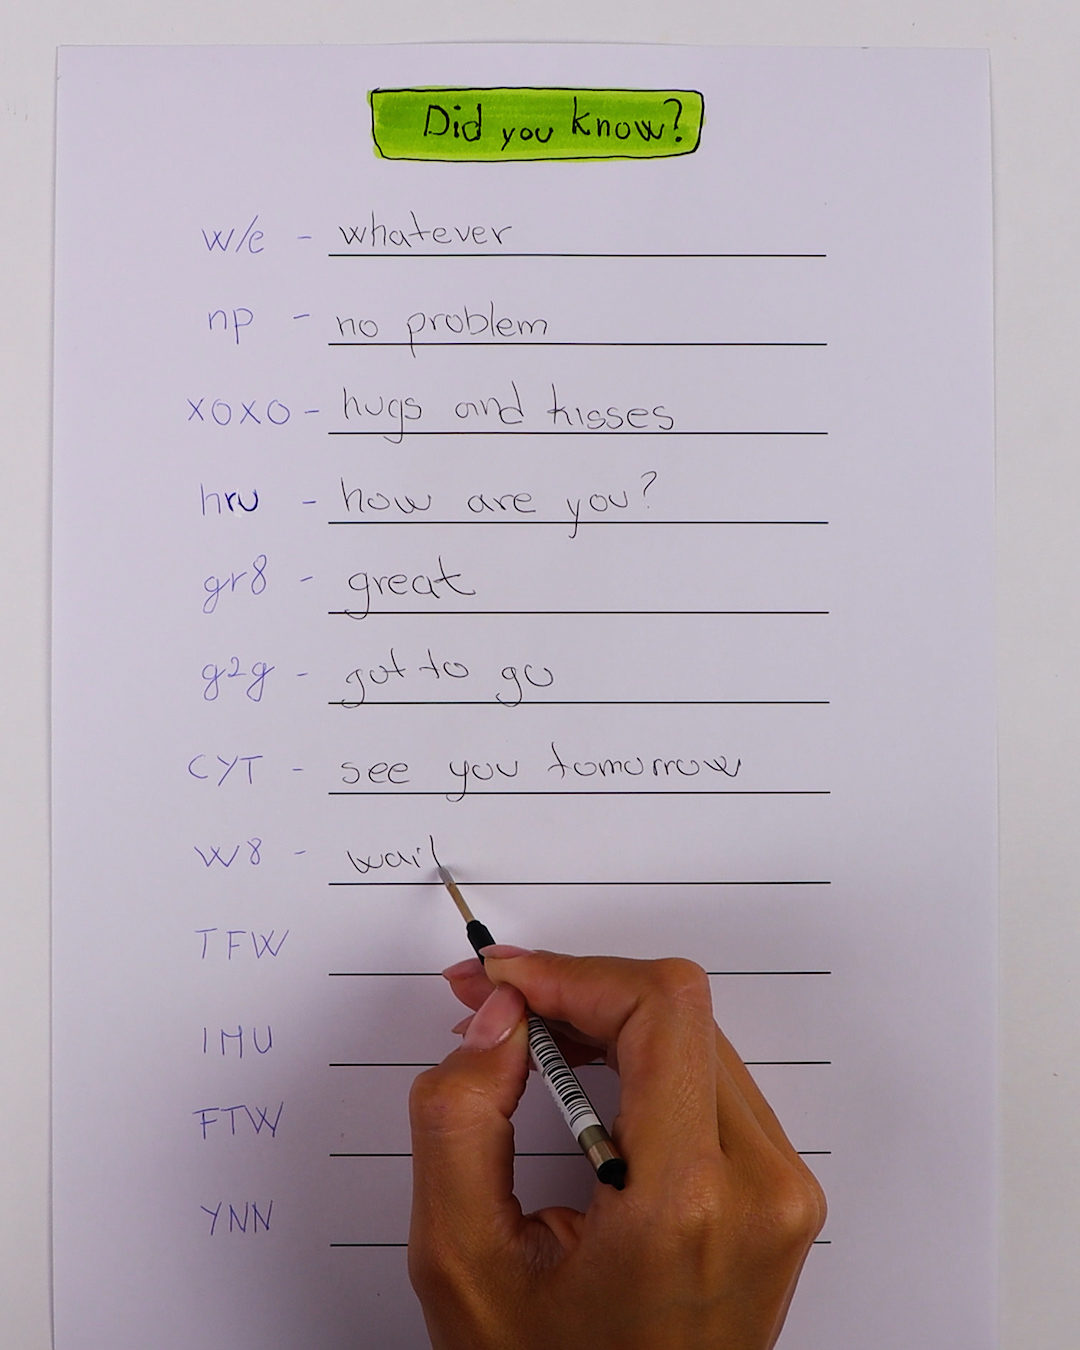 Did you know?
w/e - whatever
np - no problem
xoxo - hugs and kisses
hru - how are you?
gr8 - great
g2g - got to go
CYT - see you tomorrow
W8 - wait
TFW
IMU
FTW
YNN